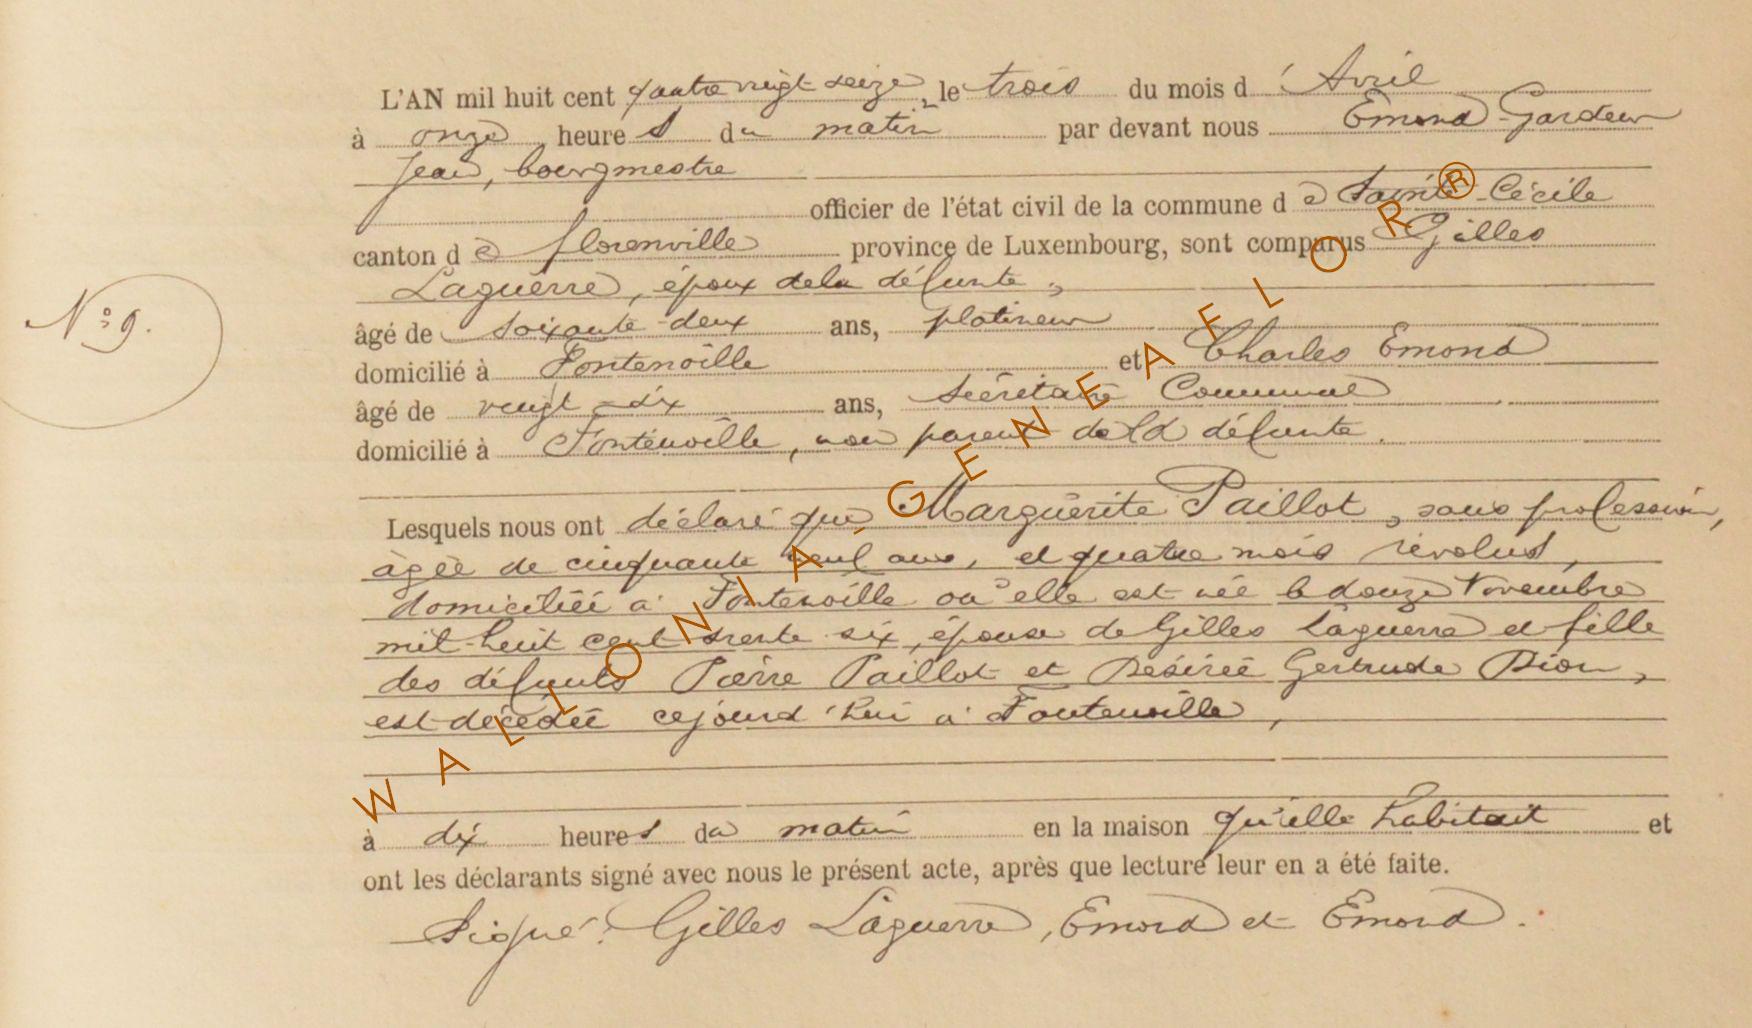 L'AN mil huit cent quatre vingt seize, le trois du mois d'Avril
à onze heures du matin par devant nous Emond-Gardeur
Jean, bourgmestre
officier de l'état civil de la commune de Sainte-Cécile
canton de florenville province de Luxembourg, sont comparus Gilles
Laguerre, époux de la défunte,
N° 9.
âgé de soixante-deux ans, platineur
domicilié à Fontenoille et Charles Emond
âgé de vingt-six ans, secrétaire Communal
domicilié à Fontenoille, non parent de la défunte.
Lesquels nous ont déclaré que Marguerite Paillot, sans profession,
âgée de cinquante neuf ans, et quatre mois révolus,
domiciliée à Fontenoille où elle est née le douze Novembre
mil-huit cent trente six, épouse de Gilles Laguerre et fille
des défunts Pierre Paillot et Désirée Gertrude Dion,
est décédée cejourd'hui à Fontenoille,
à dix heures du matin en la maison qu'elle habitait et
ont les déclarants signé avec nous le présent acte, après que lecture leur en a été faite.
Signé: Gilles Laguerre, Emond et Emond.
WALLONIA GENEAFLOR®